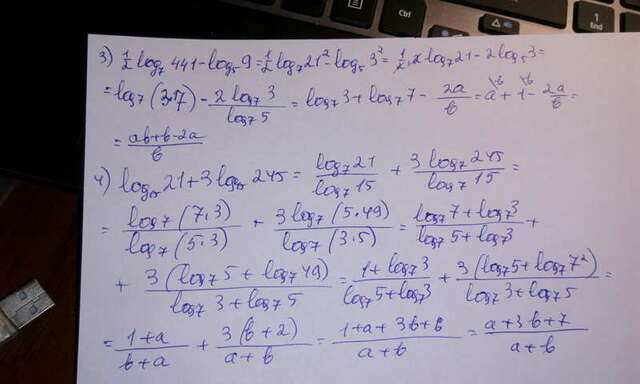 Ctrl
End
3) 1/2 log₇ 441 - log₅ 9 = 1/2 log₇ 21² - log₅ 3² = 1/2 · 2 log₇ 21 - 2 log₅ 3 =
= log₇ (3·7) - (2 log₇ 3)/(log₇ 5) = log₇ 3 + log₇ 7 - 2a/b = a + 1 - 2a/b =
= (ab+b-2a)/b
4) log₁₅ 21 + 3 log₁₅ 245 = (log₇ 21)/(log₇ 15) + (3 log₇ 245)/(log₇ 15) =
= (log₇ (7·3))/(log₇ (5·3)) + (3 log₇ (5·49))/(log₇ (3·5)) = (log₇ 7 + log₇ 3)/(log₇ 5 + log₇ 3) +
+ (3 (log₇ 5 + log₇ 49))/(log₇ 3 + log₇ 5) = (1 + log₇ 3)/(log₇ 5 + log₇ 3) + (3 (log₇ 5 + log₇ 7²))/(log₇ 3 + log₇ 5) =
= (1+a)/(b+a) + (3(b+2))/(a+b) = (1+a+3b+6)/(a+b) = (a+3b+7)/(a+b)